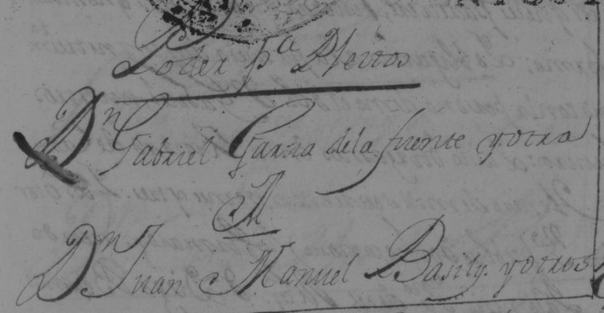 Poder pa Pleitos
Dn Gabriel Garcia dela fuente y otra
A
Dn Juan Manuel Basily. y otros